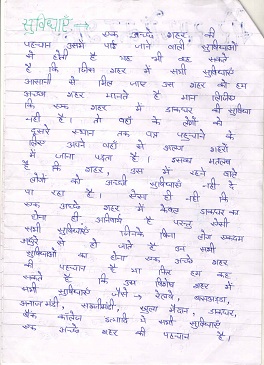 सुविधाएँ →
एक अच्छे शहर की
पहचान उसमें पाई जाने वाली सुविधाओं
से होती है यह भी कह सकते
है कि जिस शहर में सभी सुविधाएँ
आसानी से मिल जाए उस शहर को हम
अच्छा शहर मानते है मान लीजिए
कि एक शहर में डाकघर की सुविधा
नहीं है। तो वहाँ के लोगों को
दूसरे स्थान तक पत्र पहुचाने के
लिए अपने वहाँ से अलग शहरों
में जाना पड़ता है। इसका मतलब
है कि शहर, उस में रहने वाले
लोगों को अच्छी सुविधाएँ नहीं दे
पा रहा है। ऐसा ही नहीं कि
एक अच्छे शहर में केवल डाकघर का
होना ही अनिवार्य है परन्तु ऐसी
सभी सुविधाएँ जिनके बिना लोग एकदम
अधूरे से हो जाते है उन सभी
सुविधाओं का होना एक अच्छे शहर
की पहचान है या फिर हम कह
सकते है कि उस विशेष शहर में
सभी सुविधाएँ जैसे → रेलवे, बसअड्डा,
अनाजमंडी, सब्जीमंडी, खुला मैदान, डाकघर,
बैंक कॉलेज इत्यादि ये सभी सुविधाएँ
एक अच्छे शहर की पहचान है।